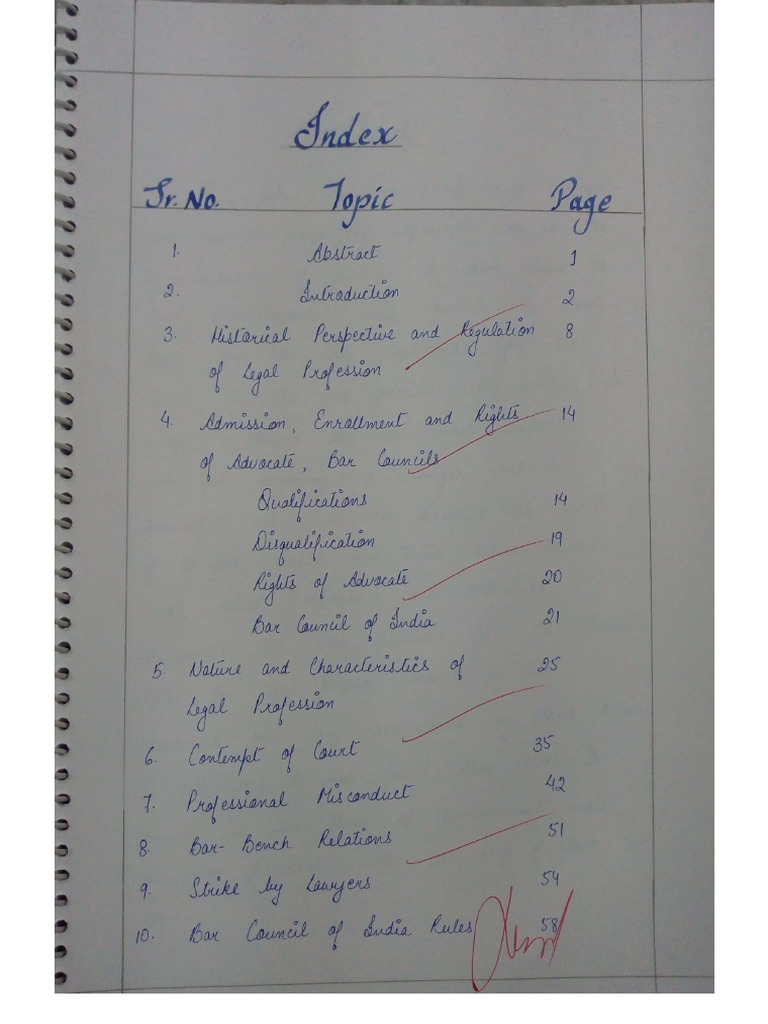 Index
Sr. No. Topic Page
1. Abstract 1
2. Introduction 2
3. Historical Perspective and Regulation 8
of Legal Profession
4. Admission, Enrollment and Rights 14
of Advocate, Bar Councils
Qualifications 14
Disqualification 19
Rights of Advocate 20
Bar Council of India 21
5. Nature and Characteristics of 25
Legal Profession
6. Contempt of Court 35
7. Professional Misconduct 42
8. Bar-Bench Relations 51
9. Strike by Lawyers 54
10. Bar Council of India Rules 58